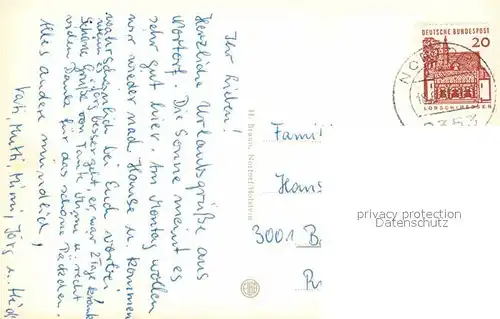 Ihr Lieben!
Herzliche Urlaubsgrüße aus
Nortorf. Die Sonne meint es
sehr gut hier. Am Montag wollen
wir wieder nach Hause u. kommen
wahrscheinlich bei Euch vorbei
wenn es Jörg besser geht, er war 2 Tage krank
Schöne Grüße von Tante u. recht
vielen Dank für das schöne Päckchen.
Alles andere mündlich,
Vati, Mutti, Mimi, Jörg u.
H. Braun, Nortorf/Holstein
DEUTSCHE BUNDESPOST
20
LORSCH/HESSEN
2353
Famil
Hans
3001 B
privacy protection
Datenschutz